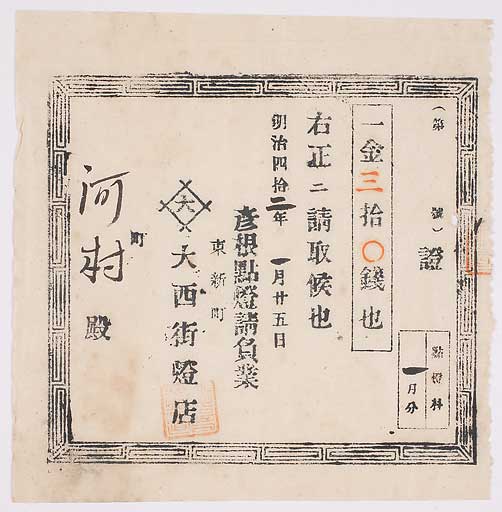 (第 號) 證
點燈料
一月分
一金三拾〇錢也
右正ニ請取候也
明治四拾二年 一月廿五日
彦根點燈請負業
東新町
大 大西街燈店
町
河村 殿